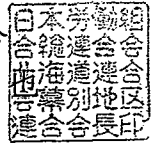 日本労働組
合総連合会
北海道連合
会幕別地区
連合会長印